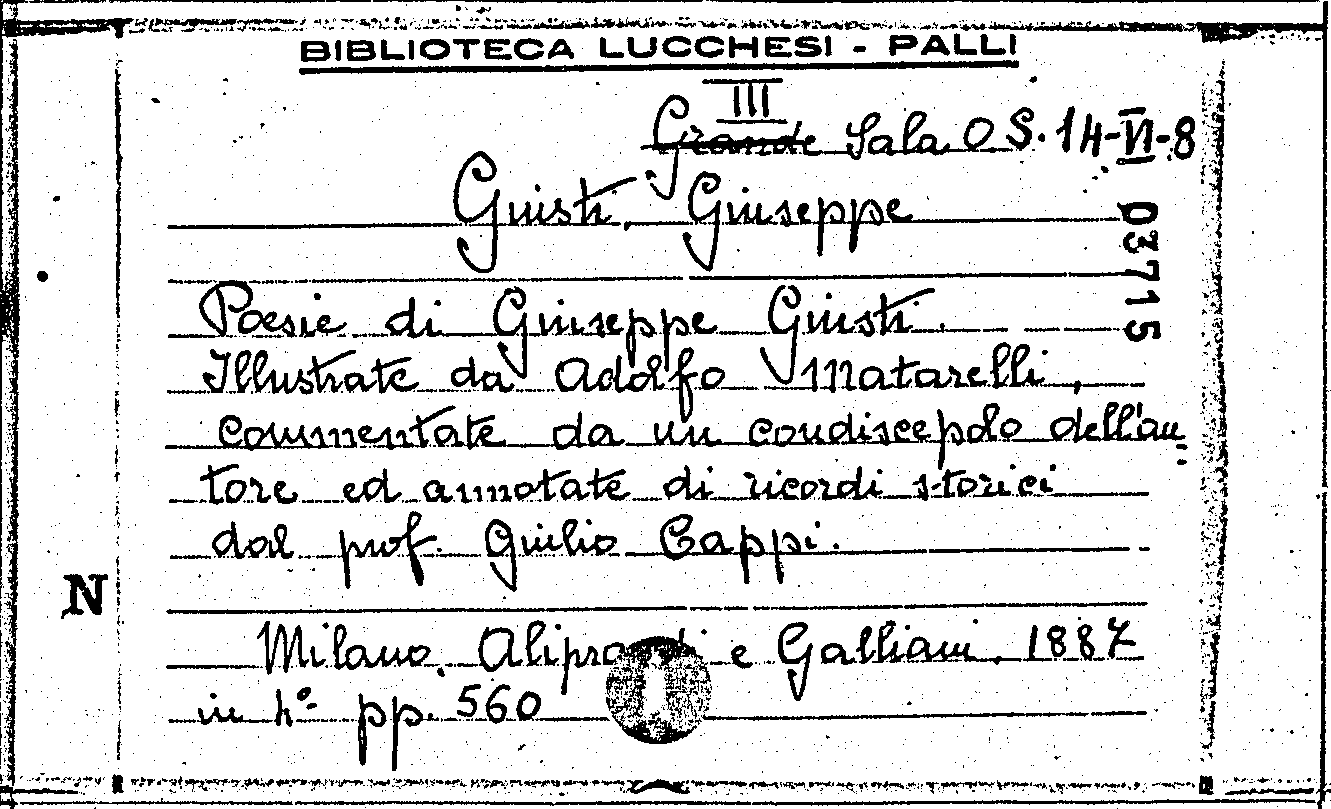 BIBLIOTECA LUCCHESI - PALLI
III
Grande Sala O S. 14-VI-8
Giusti, Giuseppe
03715
Poesie di Giuseppe Giusti.
Illustrate da Adolfo Matarelli,
commentate da un condiscepolo dell'au=
tore ed annotate di ricordi storici
dal prof. Giulio Cappi.
N
Milano, Aliprandi e Galliani, 1887
in 4º pp. 560